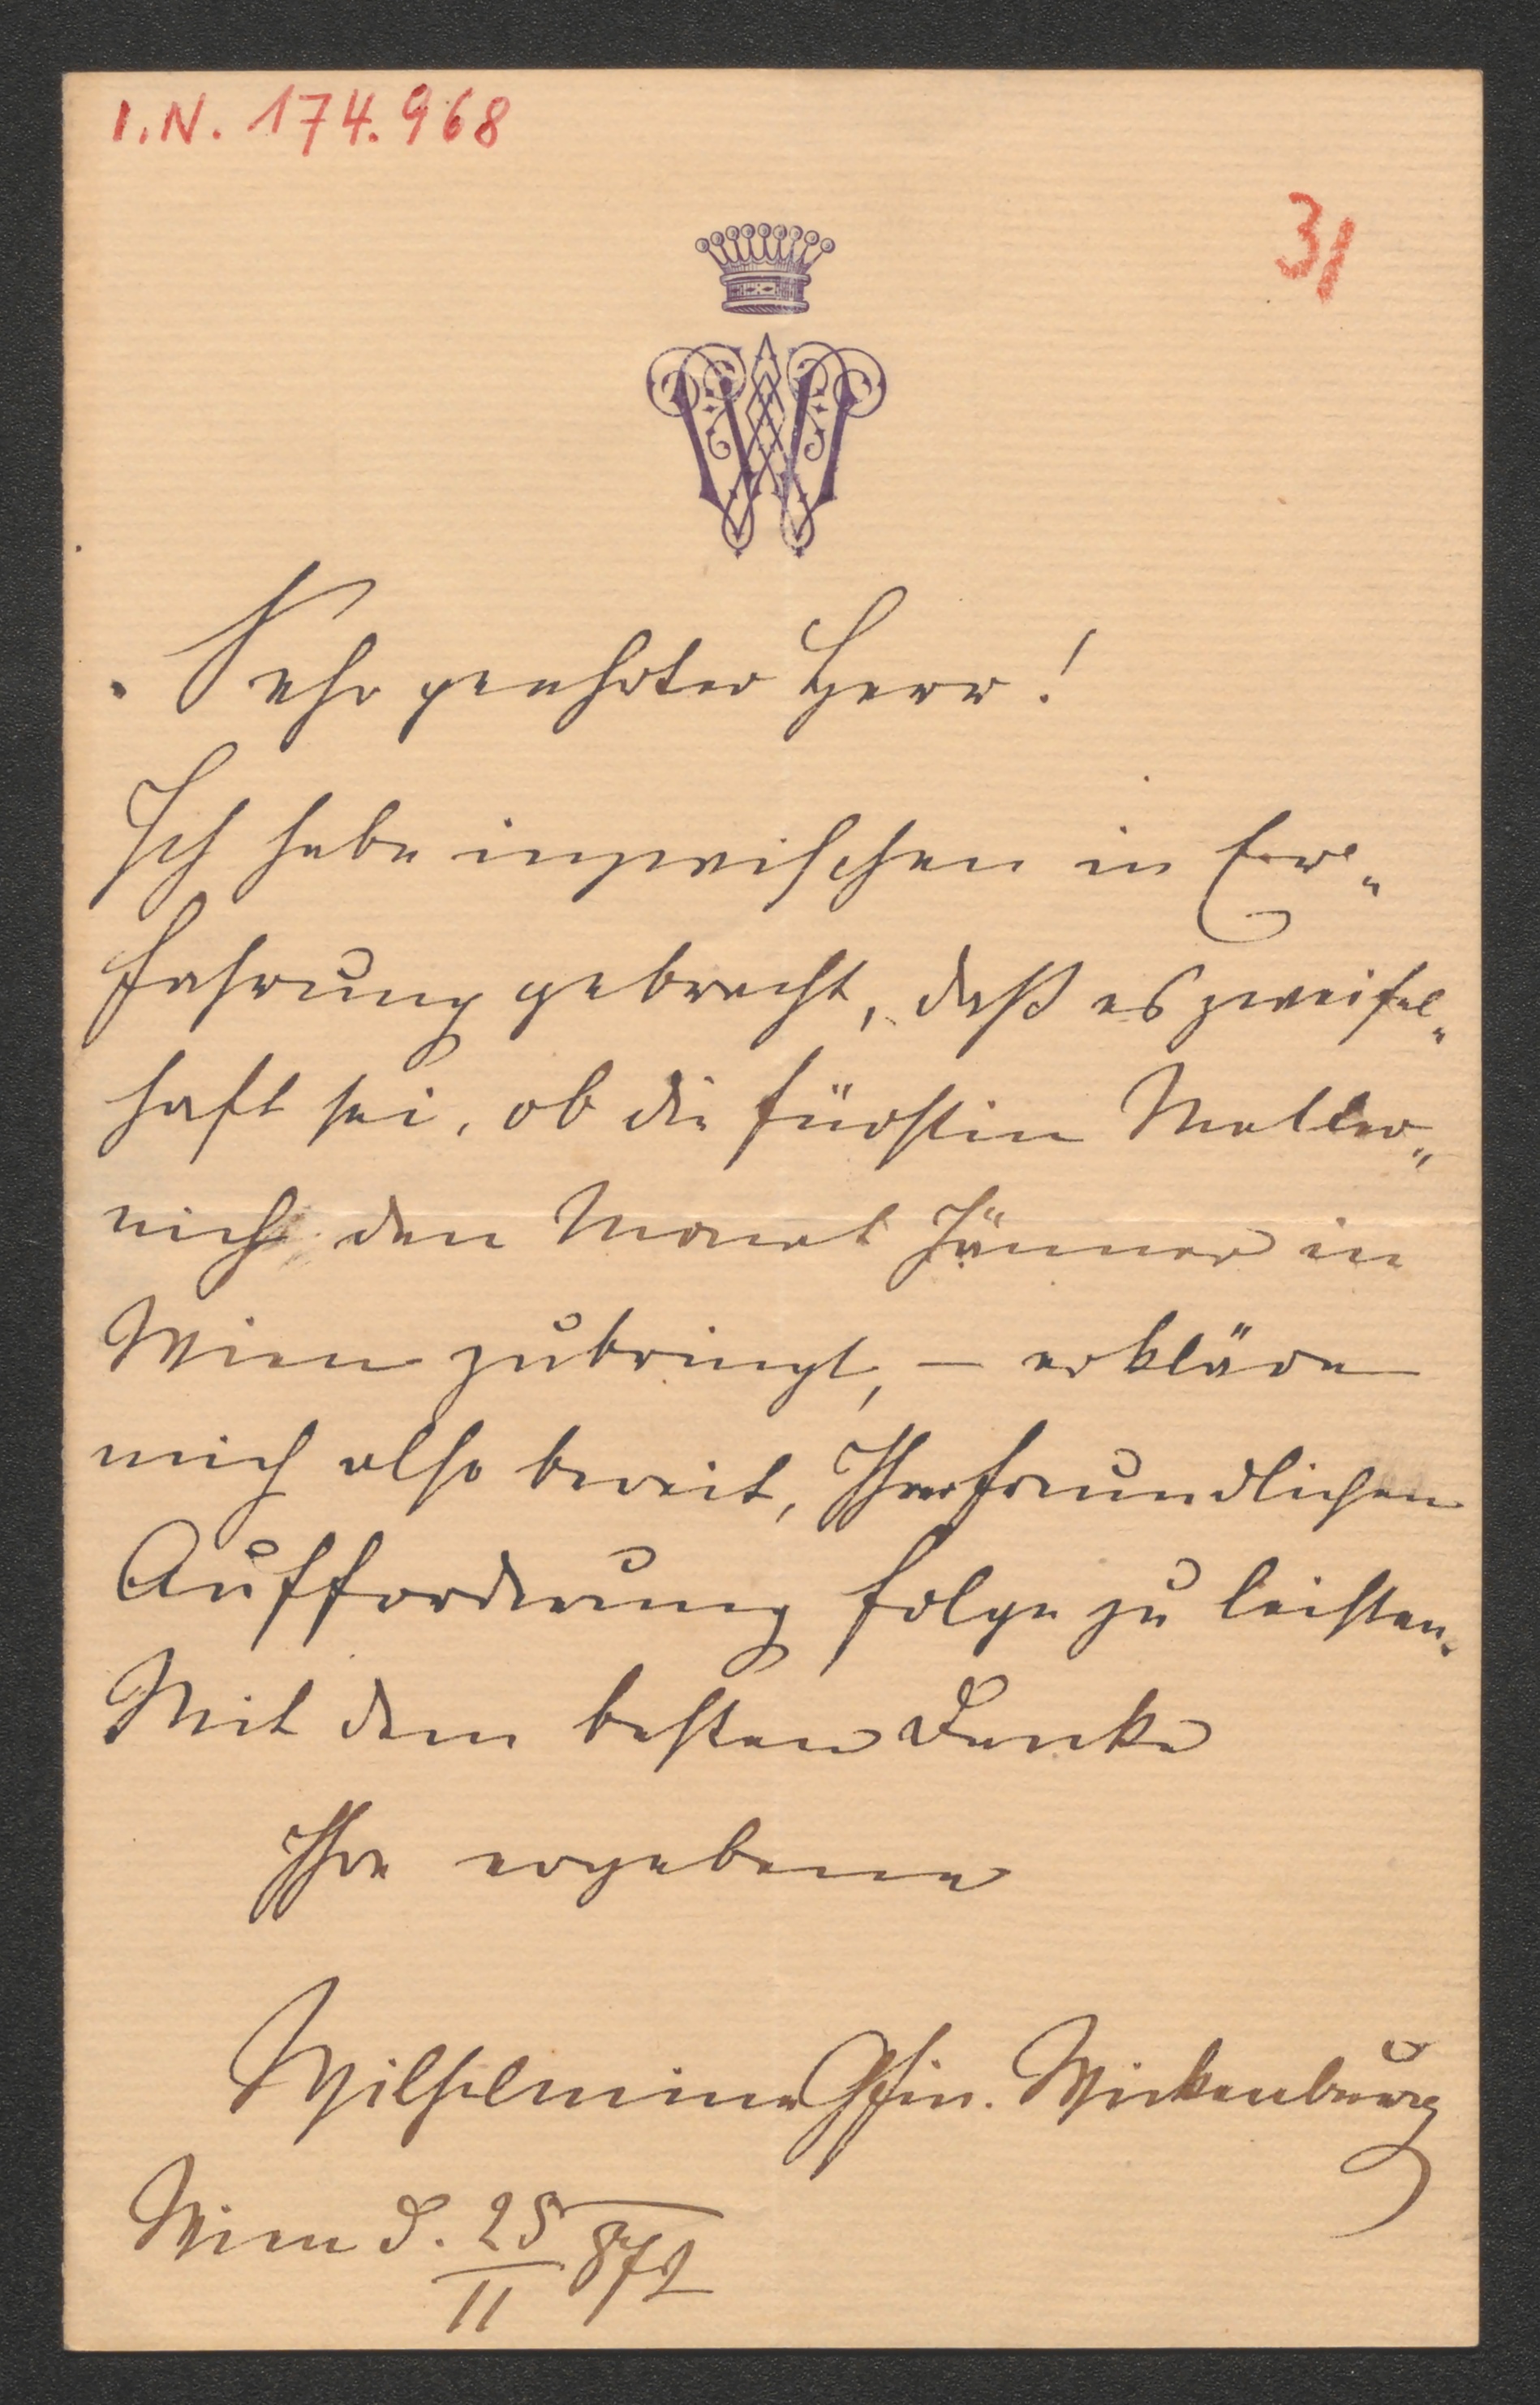 I.N. 174.968
31
W
Sehr geehrter Herr!
Ich habe inzwischen in Er-
fahrung gebracht, daß es zweifel-
haft sei, ob die Fürstin Metter-
nich den Monat Jänner in
Wien zubringt, – erkläre
mich also bereit, Ihrer freundlichen
Aufforderung Folge zu leisten.
Mit dem besten Danke
Ihre ergebene
Wilhelmine Gfin. Wickenburg
Wien d. 25/11 872